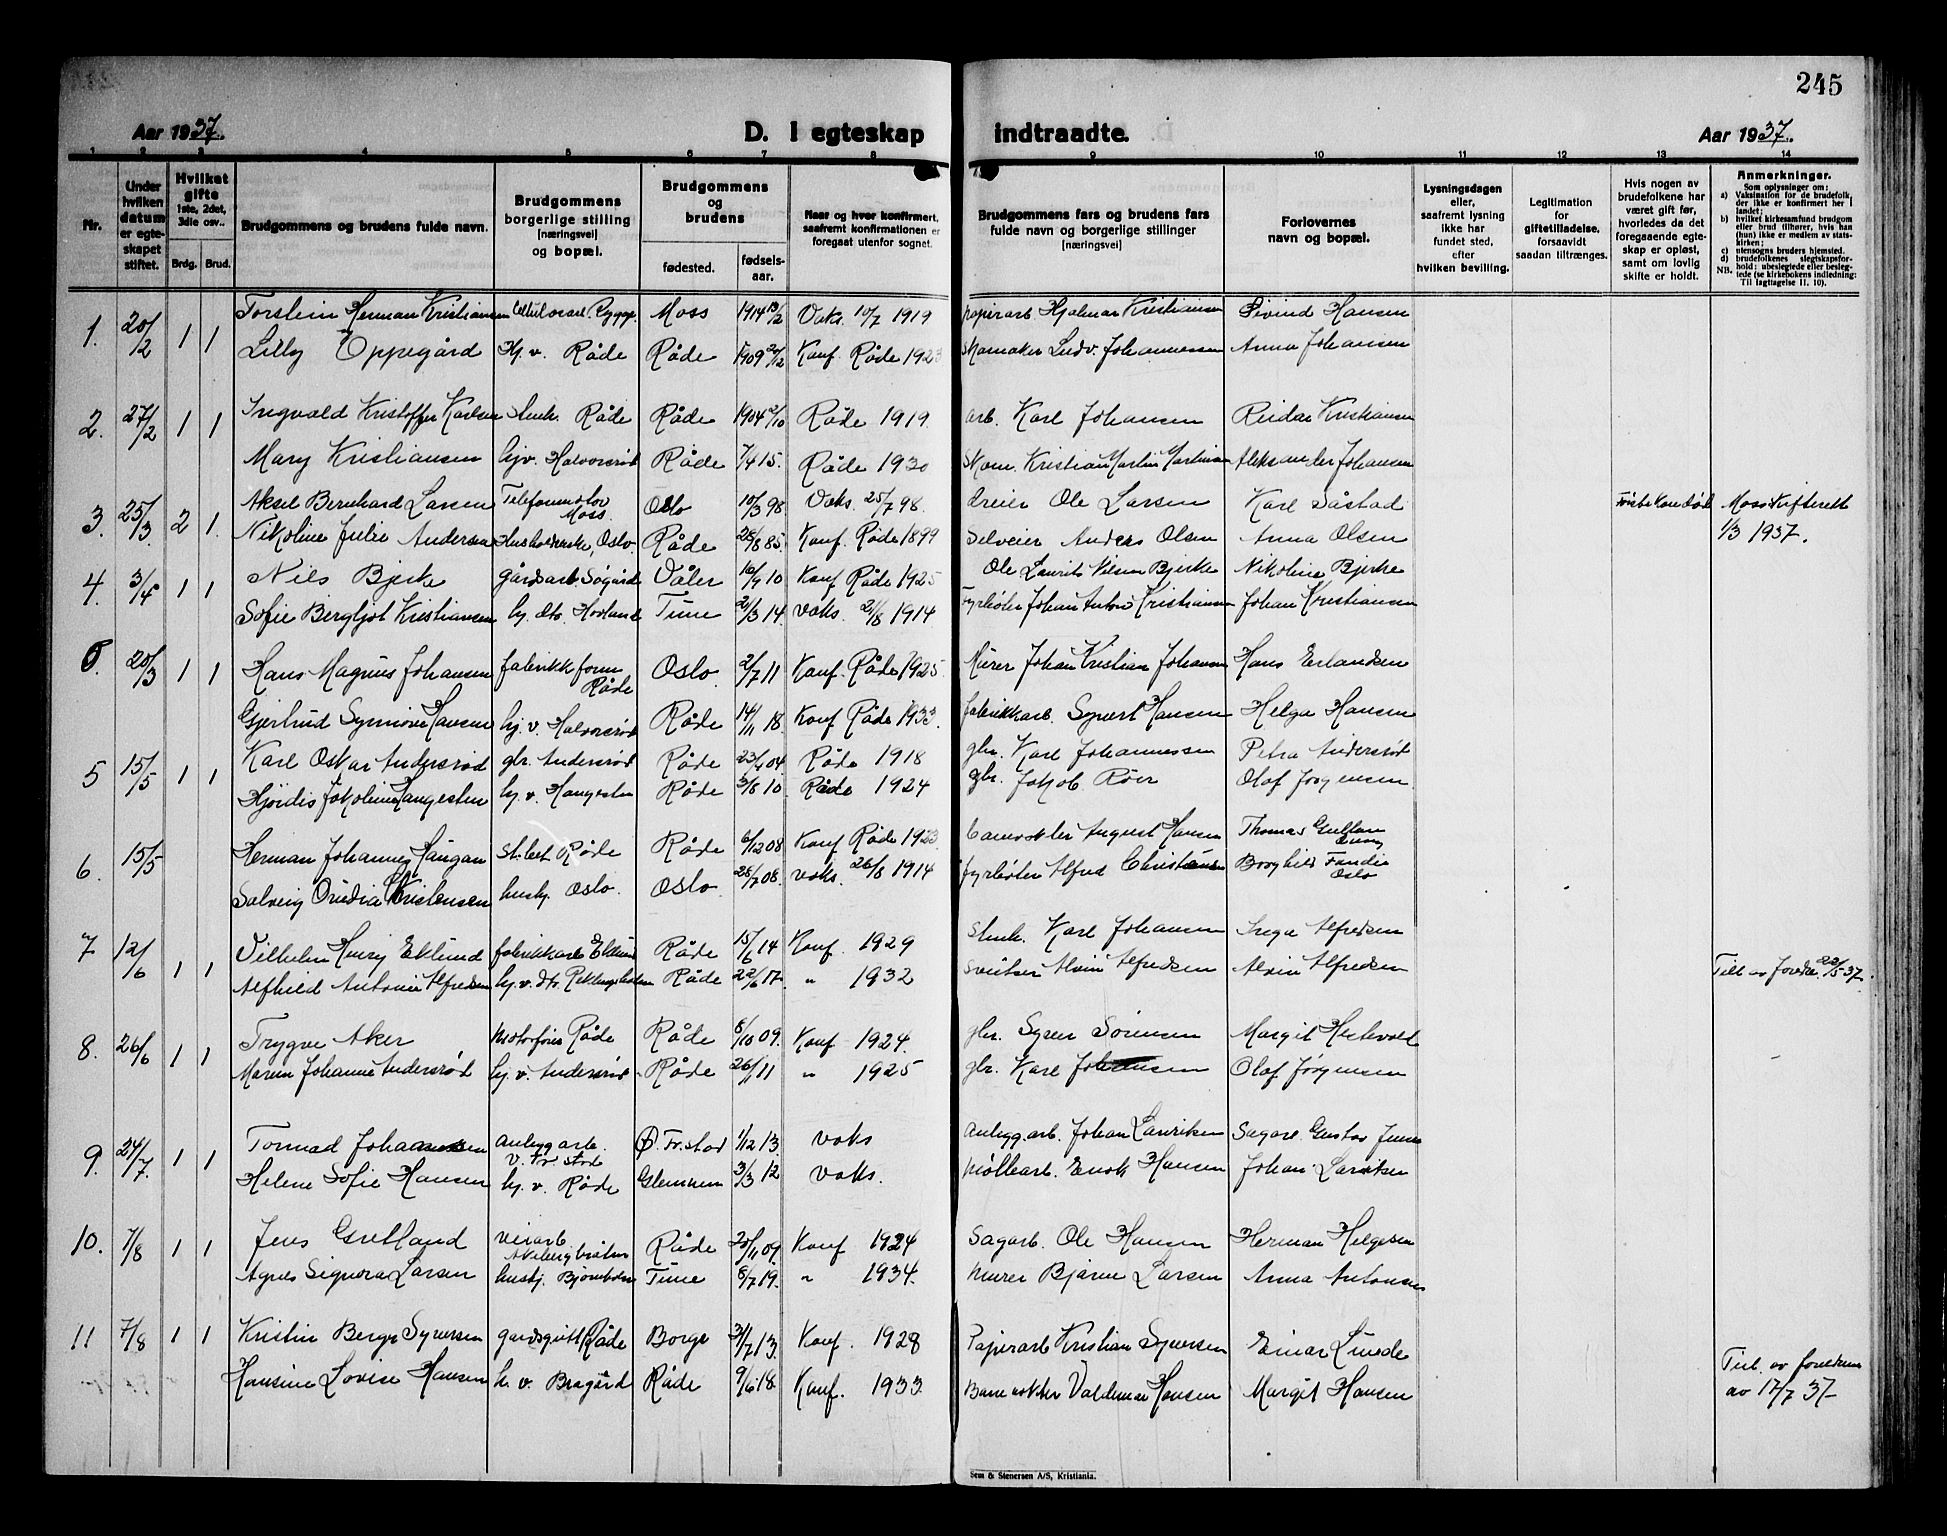 245
Aar 1937. D. I egteskap indtraadte. Aar 1937.
1 2 3 4 5 6 7 8 9 10 11 12 13 14
Nr.
Under hvilken datum er egteskapet stiftet.
Hvilket gifte 1ste, 2det, 3dje osv..
Brdg. Brud.
Brudgommens og brudens fulde navn.
Brudgommens borgerlige stilling [næringsvei] og bopæl.
Brudgommens og brudens
fødested. fødsels-aar.
Naar og hvor konfirmert, saafremt konfirmationen er foregaat utenfor sognet.
Brudgommens fars og brudens fars fulde navn og borgerlige stillinger [næringsvei]
Forlovernes navn og bopæl.
Lysningsdagen eller, saafremt lysning ikke har fundet sted, efter hvilken bevilling.
Legitimation for giftetilladelse, forsaavidt saadan tiltrænges.
Hvis nogen av brudefolkene har været gift før, hvorledes da det foregaaende egteskap er opløst, samt om lovlig skifte er holdt.
Anmerkninger.
Som oplysninger om:
a) Vaksination for de brudefolk, der ikke er konfirmert her i landet;
b) hvilket kirkesamfund brudgom eller brud tilhører, hvis han (hun) ikke er medlem av statskirken;
c) utensogns bruders hjemsted.
d) brudefolkenes slegtskapsforhold: ubeslegtede eller beslegtede (se kirkebokens indledning: Til Iagttagelse II. 10).
NB.
1. 20/2 1 1 Torstein Herman Kristiansen Moss 1914 13/2 Vaks. 10/7 1919 papirarb. Hjalmar Kristiansen Eivind Hansen
Lilly Oppegård Hj. v. Råde Råde 1909 Konf. Råde 1923 Skomaker Ludv. Johannessen Anna Johansen
2. 27/2 1 1 Ingvald Kristoffer Karlsen Stenh. Råde Råde 1904 2/10 Råde 1919. arb. Karl Johansen Reidar Kristiansen
Mary Kristiansen hjv. Halvorsrød Råde 7/4 15. Råde 1930 Skom. Kristian Martin Martinsen Aleksander Johansen
3. 25/3. 2 1. Aksel Bernhard Larsen Moss. Oslo 10/3 98 Vaks. 25/7 98. dreier Ole Larsen Karl Såstad Moss Skifterett
Nikoline Julie Andersen Oslo Råde 28/8 85. Konf. Råde 1899 Selveier Anders Olsen Anna Olsen 1/3 1937.
4. 3/4 1 1 Niels Bjerke gårdsarb. Søgård Våler 16/9 10 Konf Råde 1925 Ole Laurits Nilsen Bjerke Nikoline Bjerke
Sofie Bergljot Kristiansen Tune 21/3 14. vaks. 21/8 1914 Fyrbøter Johan Anton Kristiansen Johan Kristiansen
20/3 1 1 Hans Magnus Johansen fabrikkform Råde Oslo 2/7 11 Konf. Råde 1925. Murer Johan Kristian Johansen Hans Erlandsen
Gjertrud Synnøve Hansen hj. v. Halvorsrød Råde 14/11 18. Konf Råde 1933. fabrikkarb. Syvert Hansen Helga Hansen
5 15/5 1 1 Karl Oskar Andersrød gbr. Andersrød Råde 23/4 04. Råde 1918 gbr. Karl Johannessen Petra Andersrød
Hjørdis Jakobine Haugesten hj. v. Haugesten Råde 3/8 10 Råde 1924 gbr. Jakob Röer Olaf Jørgensen
6. 15/5 1 1 Herman Johannes Haugan Råde Råde 6/12 08 Konf Råde 1923 Banevokter August Hansen Thomas
Solveig Ovidia Kristensen hushj. Oslo. Oslo 28/7 08. vaks. 26/8 1914 fyrbøter Alfred Christensen Borghild Oslo
7 12/6 1 1 Vilhelm Henry Eklund fabrikkarb Eklund Råde 15/6 14 Konf. 1929 Stenh. Karl Johansen Inga Alfredsen
Alfhild Antonie Alfredsen Råde 22/6 17. " 1932 Sveitser Alvin Alfredsen Alvin Alfredsen Till av foreldre 22/5-37.
8. 26/6 1 1 Trygve Aker Motorfører Råde Råde 8/10 09. Konf 1924. gbr. Syver Sørensen Margit
Maren Johanne Andersrød hj. v. Andersrød Råde 26/11 11 " 1925 gbr. Karl Johansen Olaf Jørgensen
9. 24/7. 1 1 Tormod Johannessen anleggarb. v. Fr.stad Fr.stad 1/12 13. vaks Anleggarb. Johan Lauriken Sagarb. Gustav
Helene Sofie Hansen hj. v. Råde Glemmen 3/3 12 vaks. Møllearb. Enok Hansen Johan
10. 7/8 1 1 Jens Gretland veiarb. Råde 20/11 09. Konf 1924 Sagarb. Ole Hansen Herman Helgesen
Agnes Signora Larsen hushj. Tune 8/7 19. " 1934. Murer Bjarne Larsen Anna Antonsen
11 7/8 1 1 Kristin Berger Syversen gardsgutt Råde Borge 31/7 13. Konf. 1928 Papirarb Kristian Syversen Einar Linde
Hansine Lovise Hansen h. v. Bragård Råde 9/6 18. Konf. 1933. Banevokter Valdemar Hansen Margit Hansen Till. av foreldrene av 17/7 37-
Sem & Stenersen A/S, Kristiania.